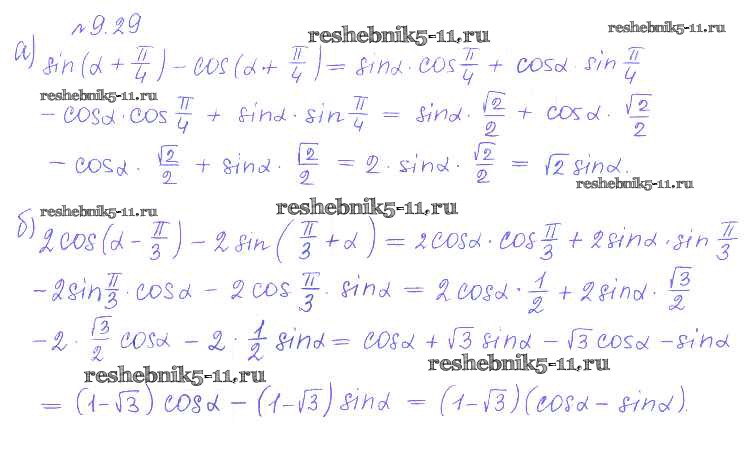 №9.29
reshebnik5-11.ru
reshebnik5-11.ru
а) sin(α + π/4) − cos(α + π/4) = sinα · cos π/4 + cosα · sin π/4
reshebnik5-11.ru
− cosα · cos π/4 + sinα · sin π/4 = sinα · √2/2 + cosα · √2/2
− cosα · √2/2 + sinα · √2/2 = 2 · sinα · √2/2 = √2 sinα.
reshebnik5-11.ru
reshebnik5-11.ru
reshebnik5-11.ru
б) 2cos(α − π/3) − 2sin(π/3 + α) = 2cosα · cos π/3 + 2sinα · sin π/3
−2sin π/3 · cosα − 2cos π/3 · sinα = 2cosα · 1/2 + 2sinα · √3/2
−2 · √3/2 cosα − 2 · 1/2 sinα = cosα + √3 sinα − √3 cosα − sinα
reshebnik5-11.ru
reshebnik5-11.ru
= (1−√3) cosα − (1−√3) sinα = (1−√3)(cosα − sinα).